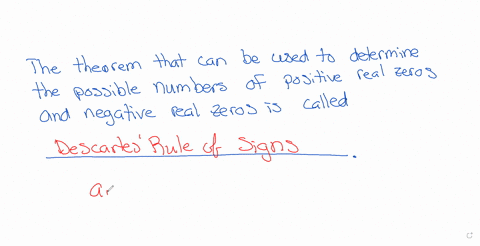 The theorem that can be used to determine
the possible numbers of positive real zeros
and negative real zeros is called
Descartes' Rule of Signs.
a